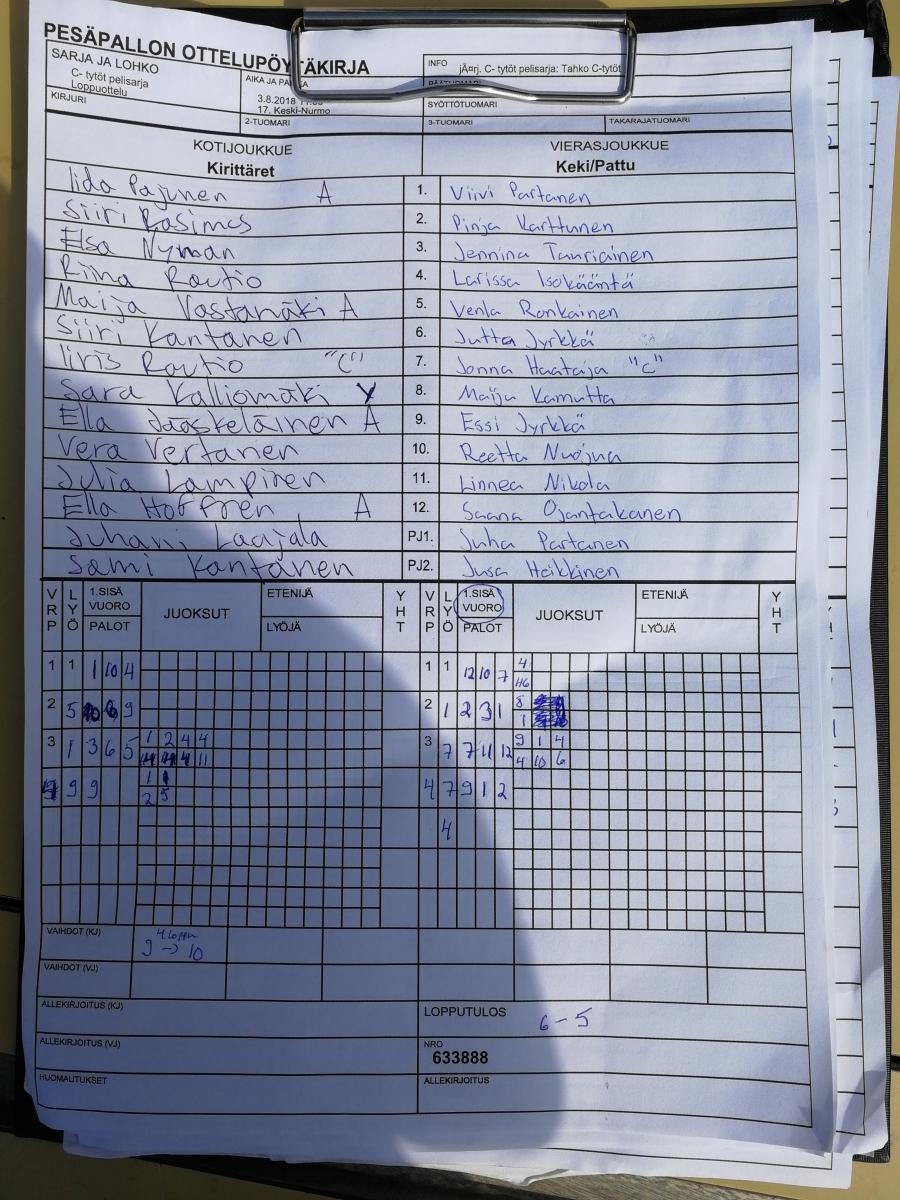 PESÄPALLON OTTELUPÖYTÄKIRJA
SARJA JA LOHKO
C- tytöt pelisarja
Loppuottelu
KIRJURI
AIKA JA
3.8.2018
17. Keski-Nurmo
2-TUOMARI
INFO jÃ¤rj. C- tytöt pelisarja: Tahko C-tytöt
SYÖTTÖTUOMARI
3-TUOMARI TAKARAJATUOMARI
KOTIJOUKKUE VIERASJOUKKUE
Kirittäret Keki/Pattu
Iida Pajunen A 1. Viivi Partanen
Siiri Rasimus 2. Pinja Karttunen
Elsa Nyman 3. Jennina Tauriainen
Riina Rautio 4. Larissa Isokääntä
Maija Vastamäki A 5. Venla Ronkainen
Siiri Kantanen 6. Jutta Jyrkkä
Iiris Rautio "C" 7. Jonna Haataja "C"
Sara Kalliomäki 8. Maija Kamutta
Ella Jääskeläinen A 9. Essi Jyrkkä
Vera Vertanen 10. Reetta Nuojua
Julia Lampinen 11. Linnea Nikola
Ella Hoffren A 12. Saana Ojantakanen
Juhani Laajala PJ1. Juha Partanen
Sami Kantanen PJ2. Jusa Heikkinen
VRP LYÖ 1.SISÄ VUORO PALOT JUOKSUT ETENIJÄ LYÖJÄ YHT VRP LYÖ 1.SISÄ VUORO PALOT JUOKSUT ETENIJÄ LYÖJÄ YHT
1 1 1 10 4 1 1 12 10 7 4
2 5 9 2 1 2 3 1 8
1
3 1 3 6 5 1 2 4 4 3 7 7 11 12 9 1 4
11 4 10 6
9 9 1 1 4 7 9 1 2
2 5
4
VAIHDOT (KJ) 4 loppu
9 → 10
VAIHDOT (VJ)
ALLEKIRJOITUS (KJ) LOPPUTULOS 6 - 5
ALLEKIRJOITUS (VJ) NRO
633888
HUOMAUTUKSET ALLEKIRJOITUS